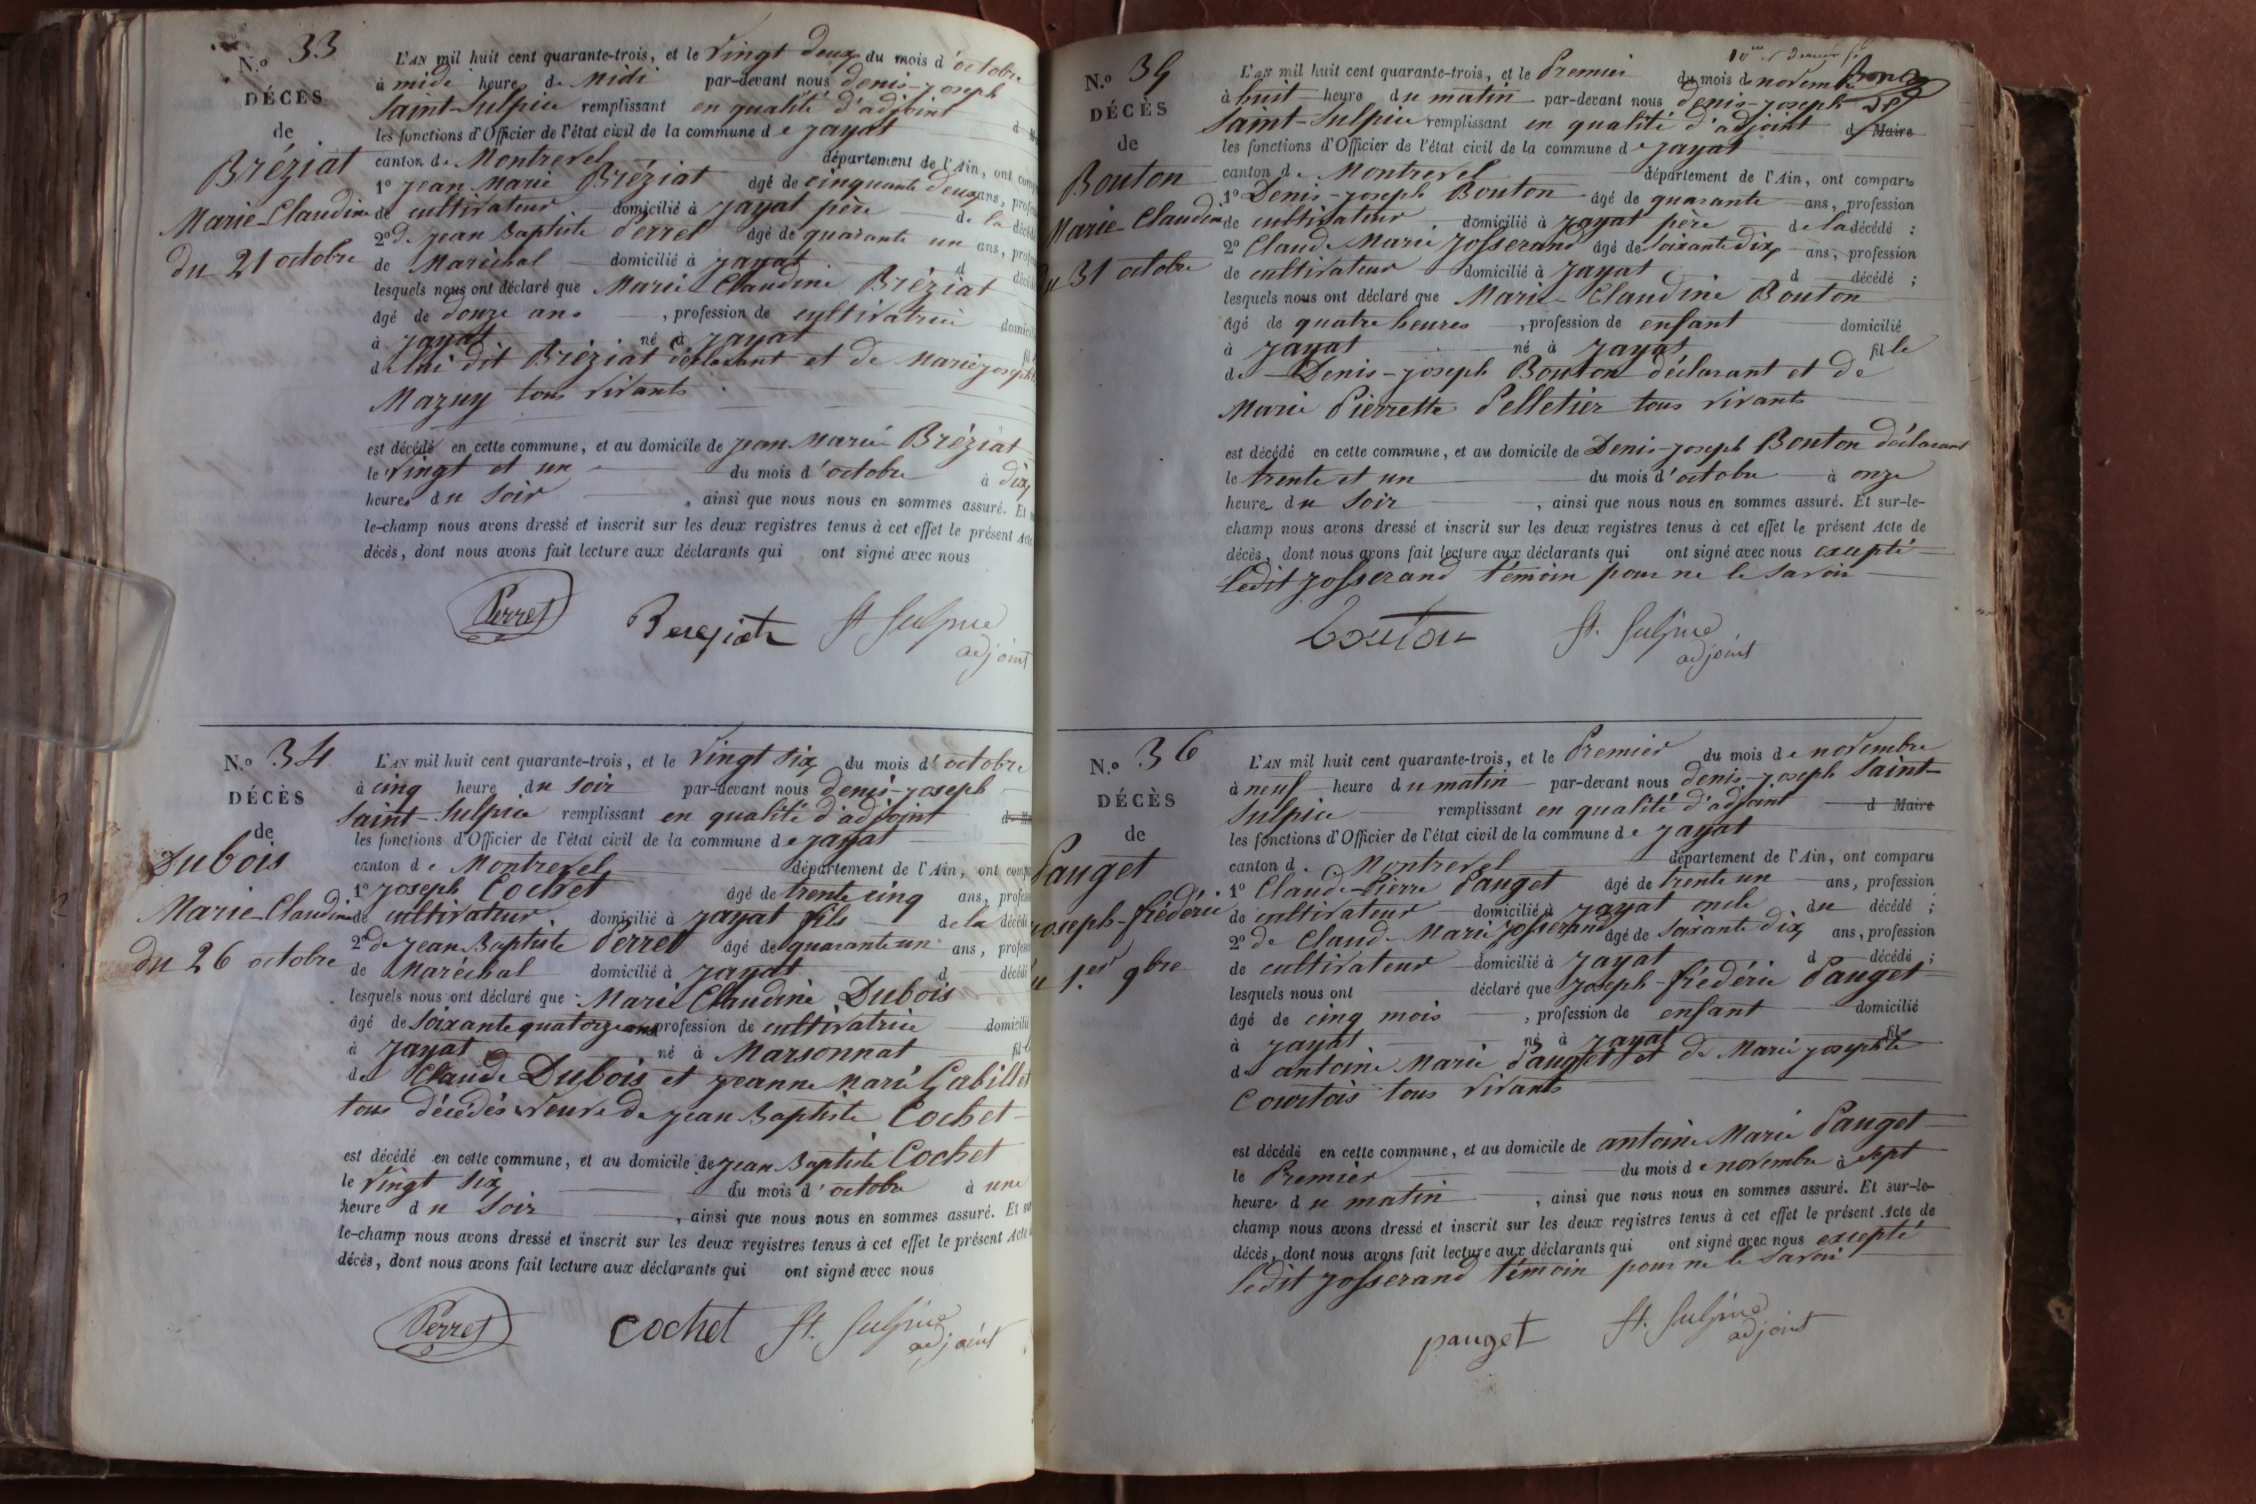 N.º 33
DÉCÈS
de
Bréziat
Marie-Claudine
du 21 octobre
L'AN mil huit cent quarante-trois, et le vingt deux du mois d'octobre
à midi heure de midi par-devant nous denis-joseph
Saint-Sulpice remplissant en qualité d'adjoint d
les fonctions d'Officier de l'état civil de la commune de jayat
canton de Montrevel département de l'Ain, ont
1º jean Marie Bréziat âgé de cinquante deux ans,
de cultivateur domicilié à jayat père de la
2º de jean Baptiste Perret âgé de quarante un ans,
de Maréchal domicilié à jayat d
lesquels nous ont déclaré que Marie Claudine Bréziat
âgé de douze ans, profession de cultivatrice
à jayat né à jayat
de lui dit Bréziat déclarant et de Marie josephte
Mazuy tous vivants
est décédé en cette commune, et au domicile de jean Marie Bréziat
le vingt et un du mois d'octobre à dix
heures du soir, ainsi que nous nous en sommes assuré. Et
le-champ nous avons dressé et inscrit sur les deux registres tenus à cet effet le présent Acte
décès, dont nous avons fait lecture aux déclarants qui ont signé avec nous
Perret
St Sulpice
adjoint
N.º 34
DÉCÈS
de
Dubois
Marie-Claudine
du 26 octobre
L'AN mil huit cent quarante-trois, et le vingt six du mois d'octobre
à cinq heure du soir par-devant nous denis-joseph
Saint-Sulpice remplissant en qualité d'adjoint
les fonctions d'Officier de l'état civil de la commune de jayat
canton de Montrevel département de l'Ain, ont
1º joseph Cochet âgé de trente cinq ans,
de cultivateur domicilié à jayat fils de la décédé
2º de jean Baptiste Perret âgé de quarante un ans,
de Maréchal domicilié à jayat d décédé
lesquels nous ont déclaré que Marie Claudine Dubois
âgé de soixante quatorze ans profession de cultivatrice domicilié
à jayat né à Marsonnat
de Claude Dubois et jeanne Marie Gabillet
tous décédés veuve de jean Baptiste Cochet
est décédé en cette commune, et au domicile de jean Baptiste Cochet
le vingt six du mois d'octobre à une
heure du soir, ainsi que nous nous en sommes assuré. Et
le-champ nous avons dressé et inscrit sur les deux registres tenus à cet effet le présent Acte
décès, dont nous avons fait lecture aux déclarants qui ont signé avec nous
Perret
cochet
St. Sulpice
adjoint
N.º 35
DÉCÈS
de
Bouton
Marie-Claudine
du 31 octobre
L'AN mil huit cent quarante-trois, et le Premier du mois de novembre
à huit heure du matin par-devant nous denis-joseph
Saint-Sulpice remplissant en qualité d'adjoint d Maire
les fonctions d'Officier de l'état civil de la commune de jayat
canton de Montrevel département de l'Ain, ont comparu
1º Denis-joseph Bouton âgé de quarante ans, profession
de cultivateur domicilié à jayat père de la décédé :
2º Claude Marie josserand âgé de soixante dix ans, profession
de cultivateur domicilié à jayat d décédé ;
lesquels nous ont déclaré que Marie-Claudine Bouton
âgé de quatre heures, profession de enfant domicilié
à jayat né à jayat fille
de Denis-joseph Bouton déclarant et de
Marie Pierrette Pelletier tous vivants
est décédé en cette commune, et au domicile de Denis-joseph Bouton déclarant
le trente et un du mois d'octobre à onze
heures du soir, ainsi que nous nous en sommes assuré. Et sur-le-
champ nous avons dressé et inscrit sur les deux registres tenus à cet effet le présent Acte de
décès, dont nous avons fait lecture aux déclarants qui ont signé avec nous excepté
ledit josserand témoin pour ne le savoir
bouton
St. Sulpice
adjoint
N.º 36
DÉCÈS
de
Pauget
joseph-frédéric
du 1.er 9bre
L'AN mil huit cent quarante-trois, et le Premier du mois de novembre
à neuf heure du matin par-devant nous denis-joseph Saint-
Sulpice remplissant en qualité d'adjoint d Maire
les fonctions d'Officier de l'état civil de la commune de jayat
canton de Montrevel département de l'Ain, ont comparu
1º Claude-Pierre Pauget âgé de trente un ans, profession
de cultivateur domicilié à jayat oncle du décédé ;
2º de Claude-Marie josserand âgé de soixante dix ans, profession
de cultivateur domicilié à jayat d décédé ;
lesquels nous ont déclaré que joseph-frédéric Pauget
âgé de cinq mois, profession de enfant domicilié
à jayat né à jayat fils
de antoine Marie Pauget et de Marie josephte
Courtois tous vivants
est décédé en cette commune, et au domicile de antoine Marie Pauget
le Premier du mois de novembre à sept
heures du matin, ainsi que nous nous en sommes assuré. Et sur-le-
champ nous avons dressé et inscrit sur les deux registres tenus à cet effet le présent Acte de
décès, dont nous avons fait lecture aux déclarants qui ont signé avec nous excepté
ledit josserand témoin pour ne le savoir
pauget
St. Sulpice
adjoint